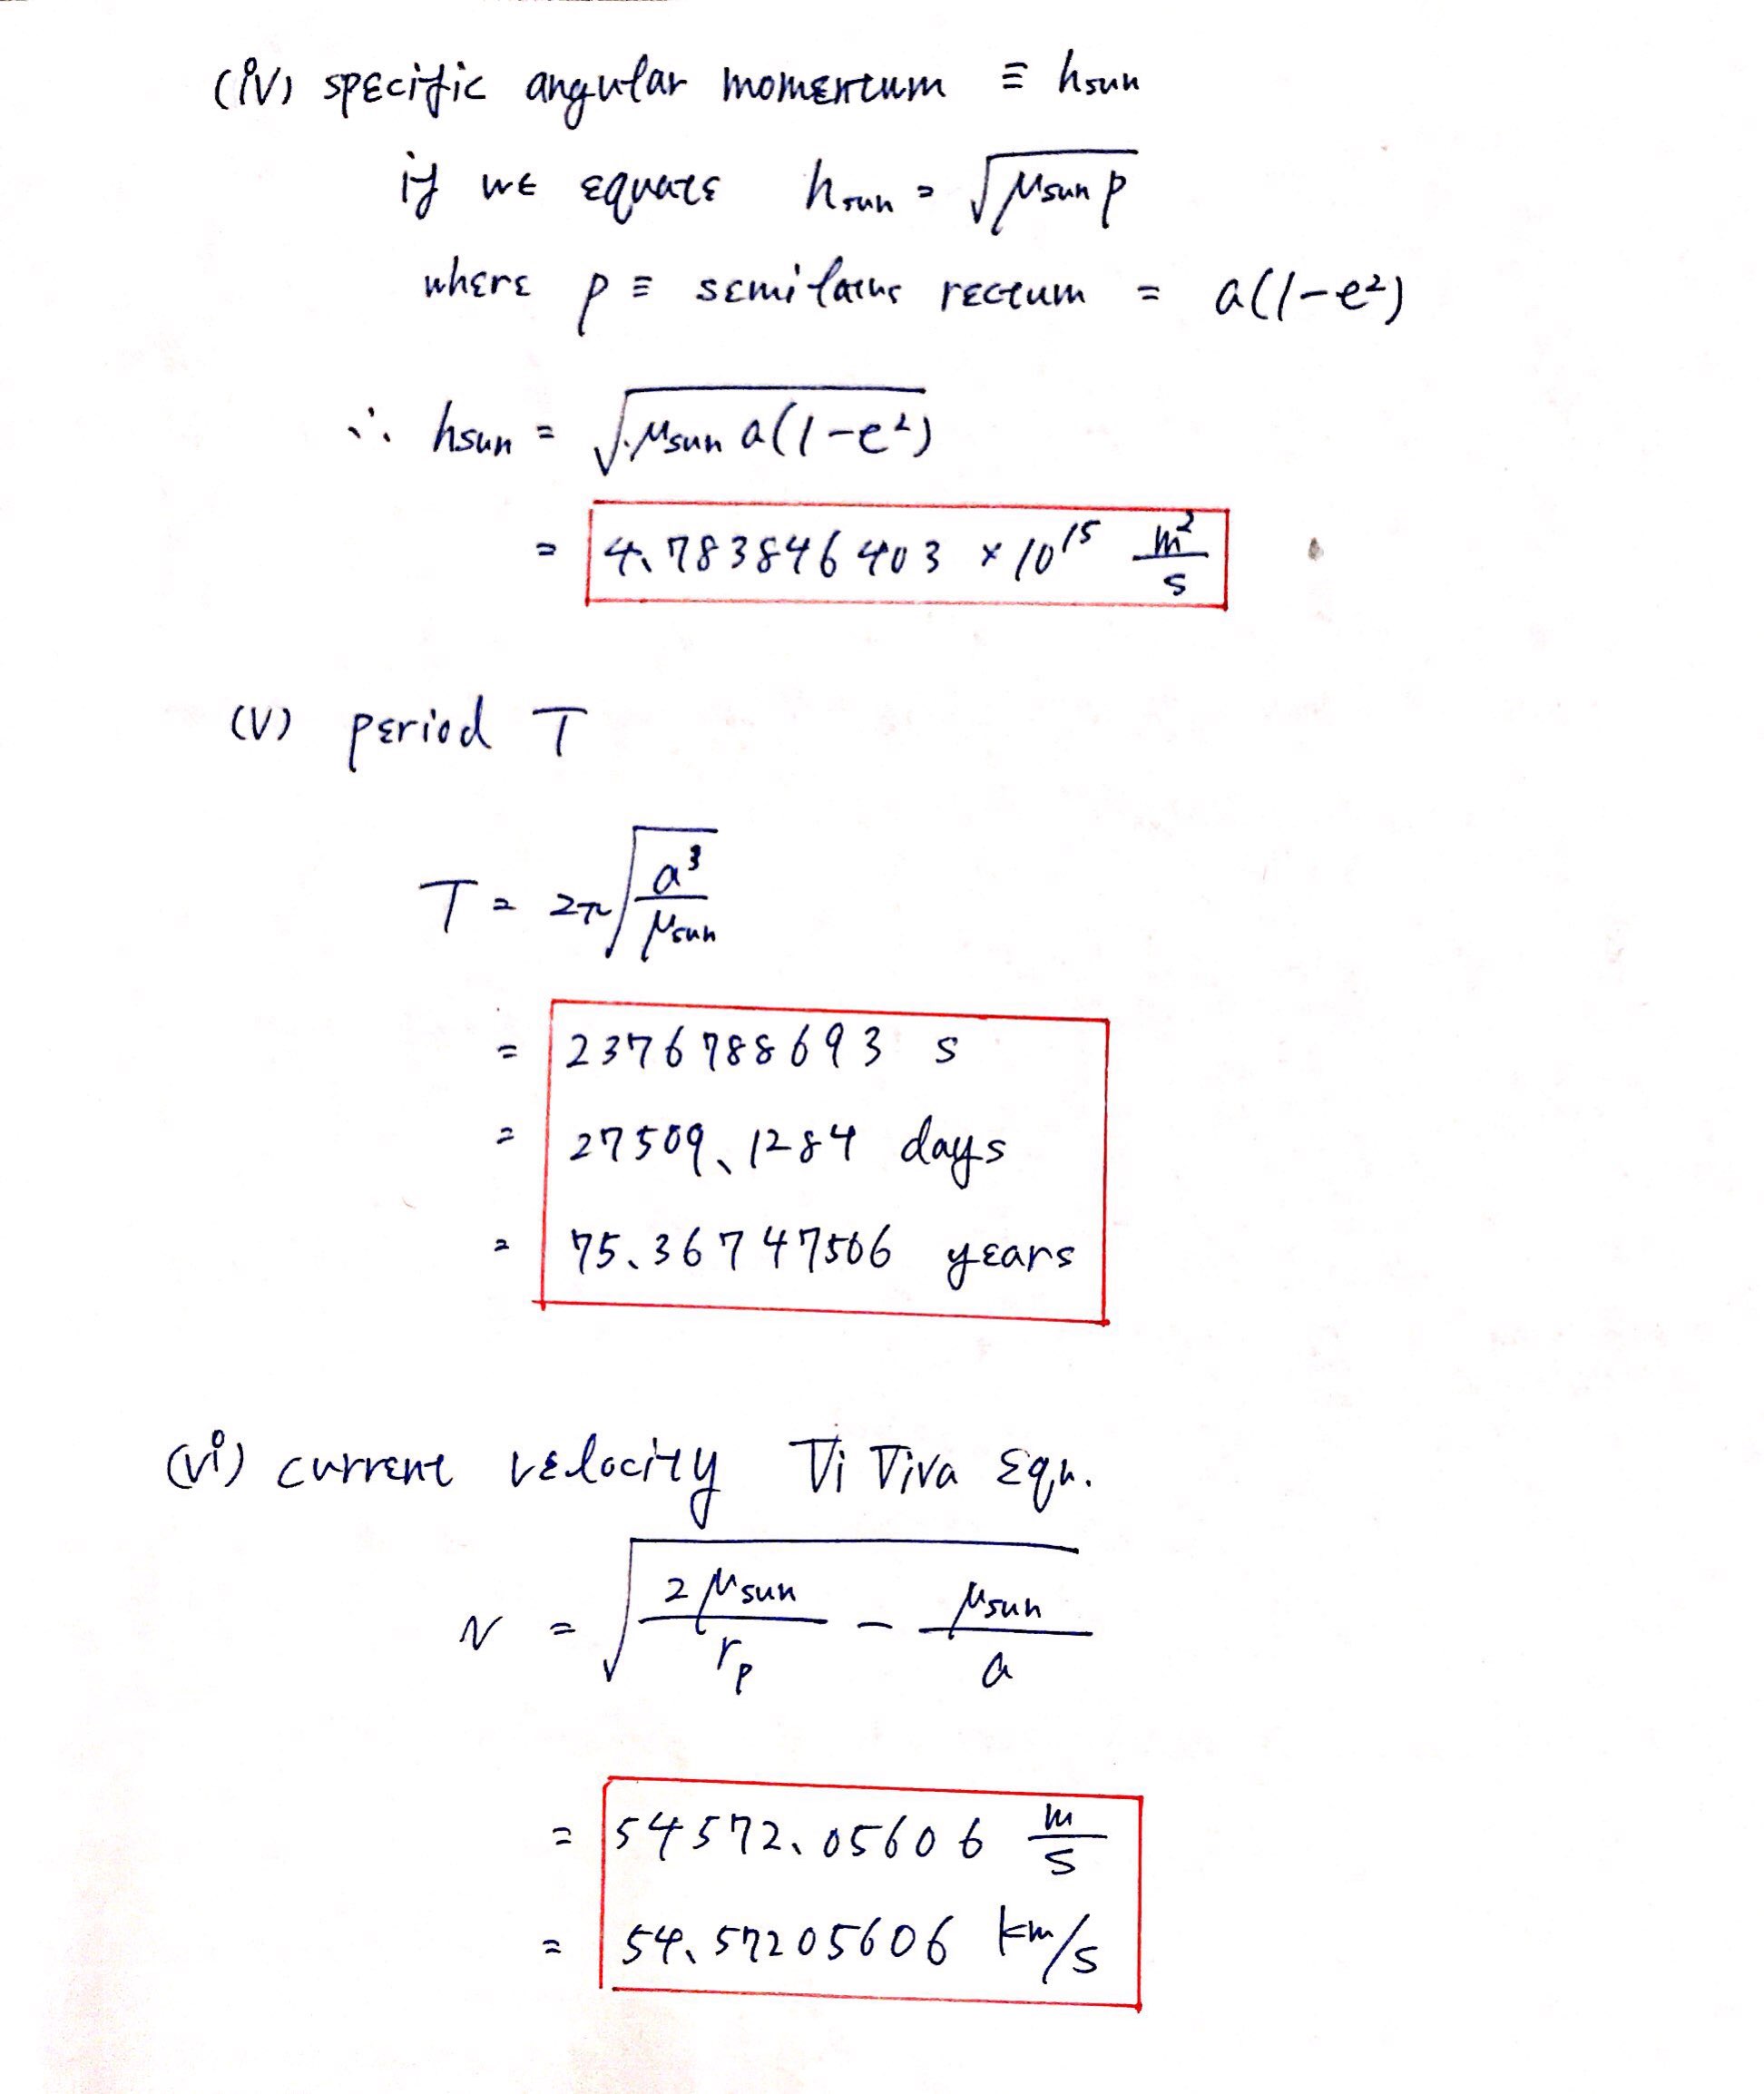 (iv) specific angular momentum ≡ hsun
if we equate hsun = √(μsun p)
where p ≡ semi latus rectum = a(1-e²)
∴ hsun = √(μsun a(1-e²))
= 4.783846403 × 10¹⁵ m²/s
(V) period T
T = 2π√(a³/μsun)
= 2376788693 s
= 27509.1284 days
= 75.36747506 years
(vi) current velocity Vi Viva Eqn.
v = √(2μsun/rp - μsun/a)
= 54572.05606 m/s
= 54.57205606 km/s